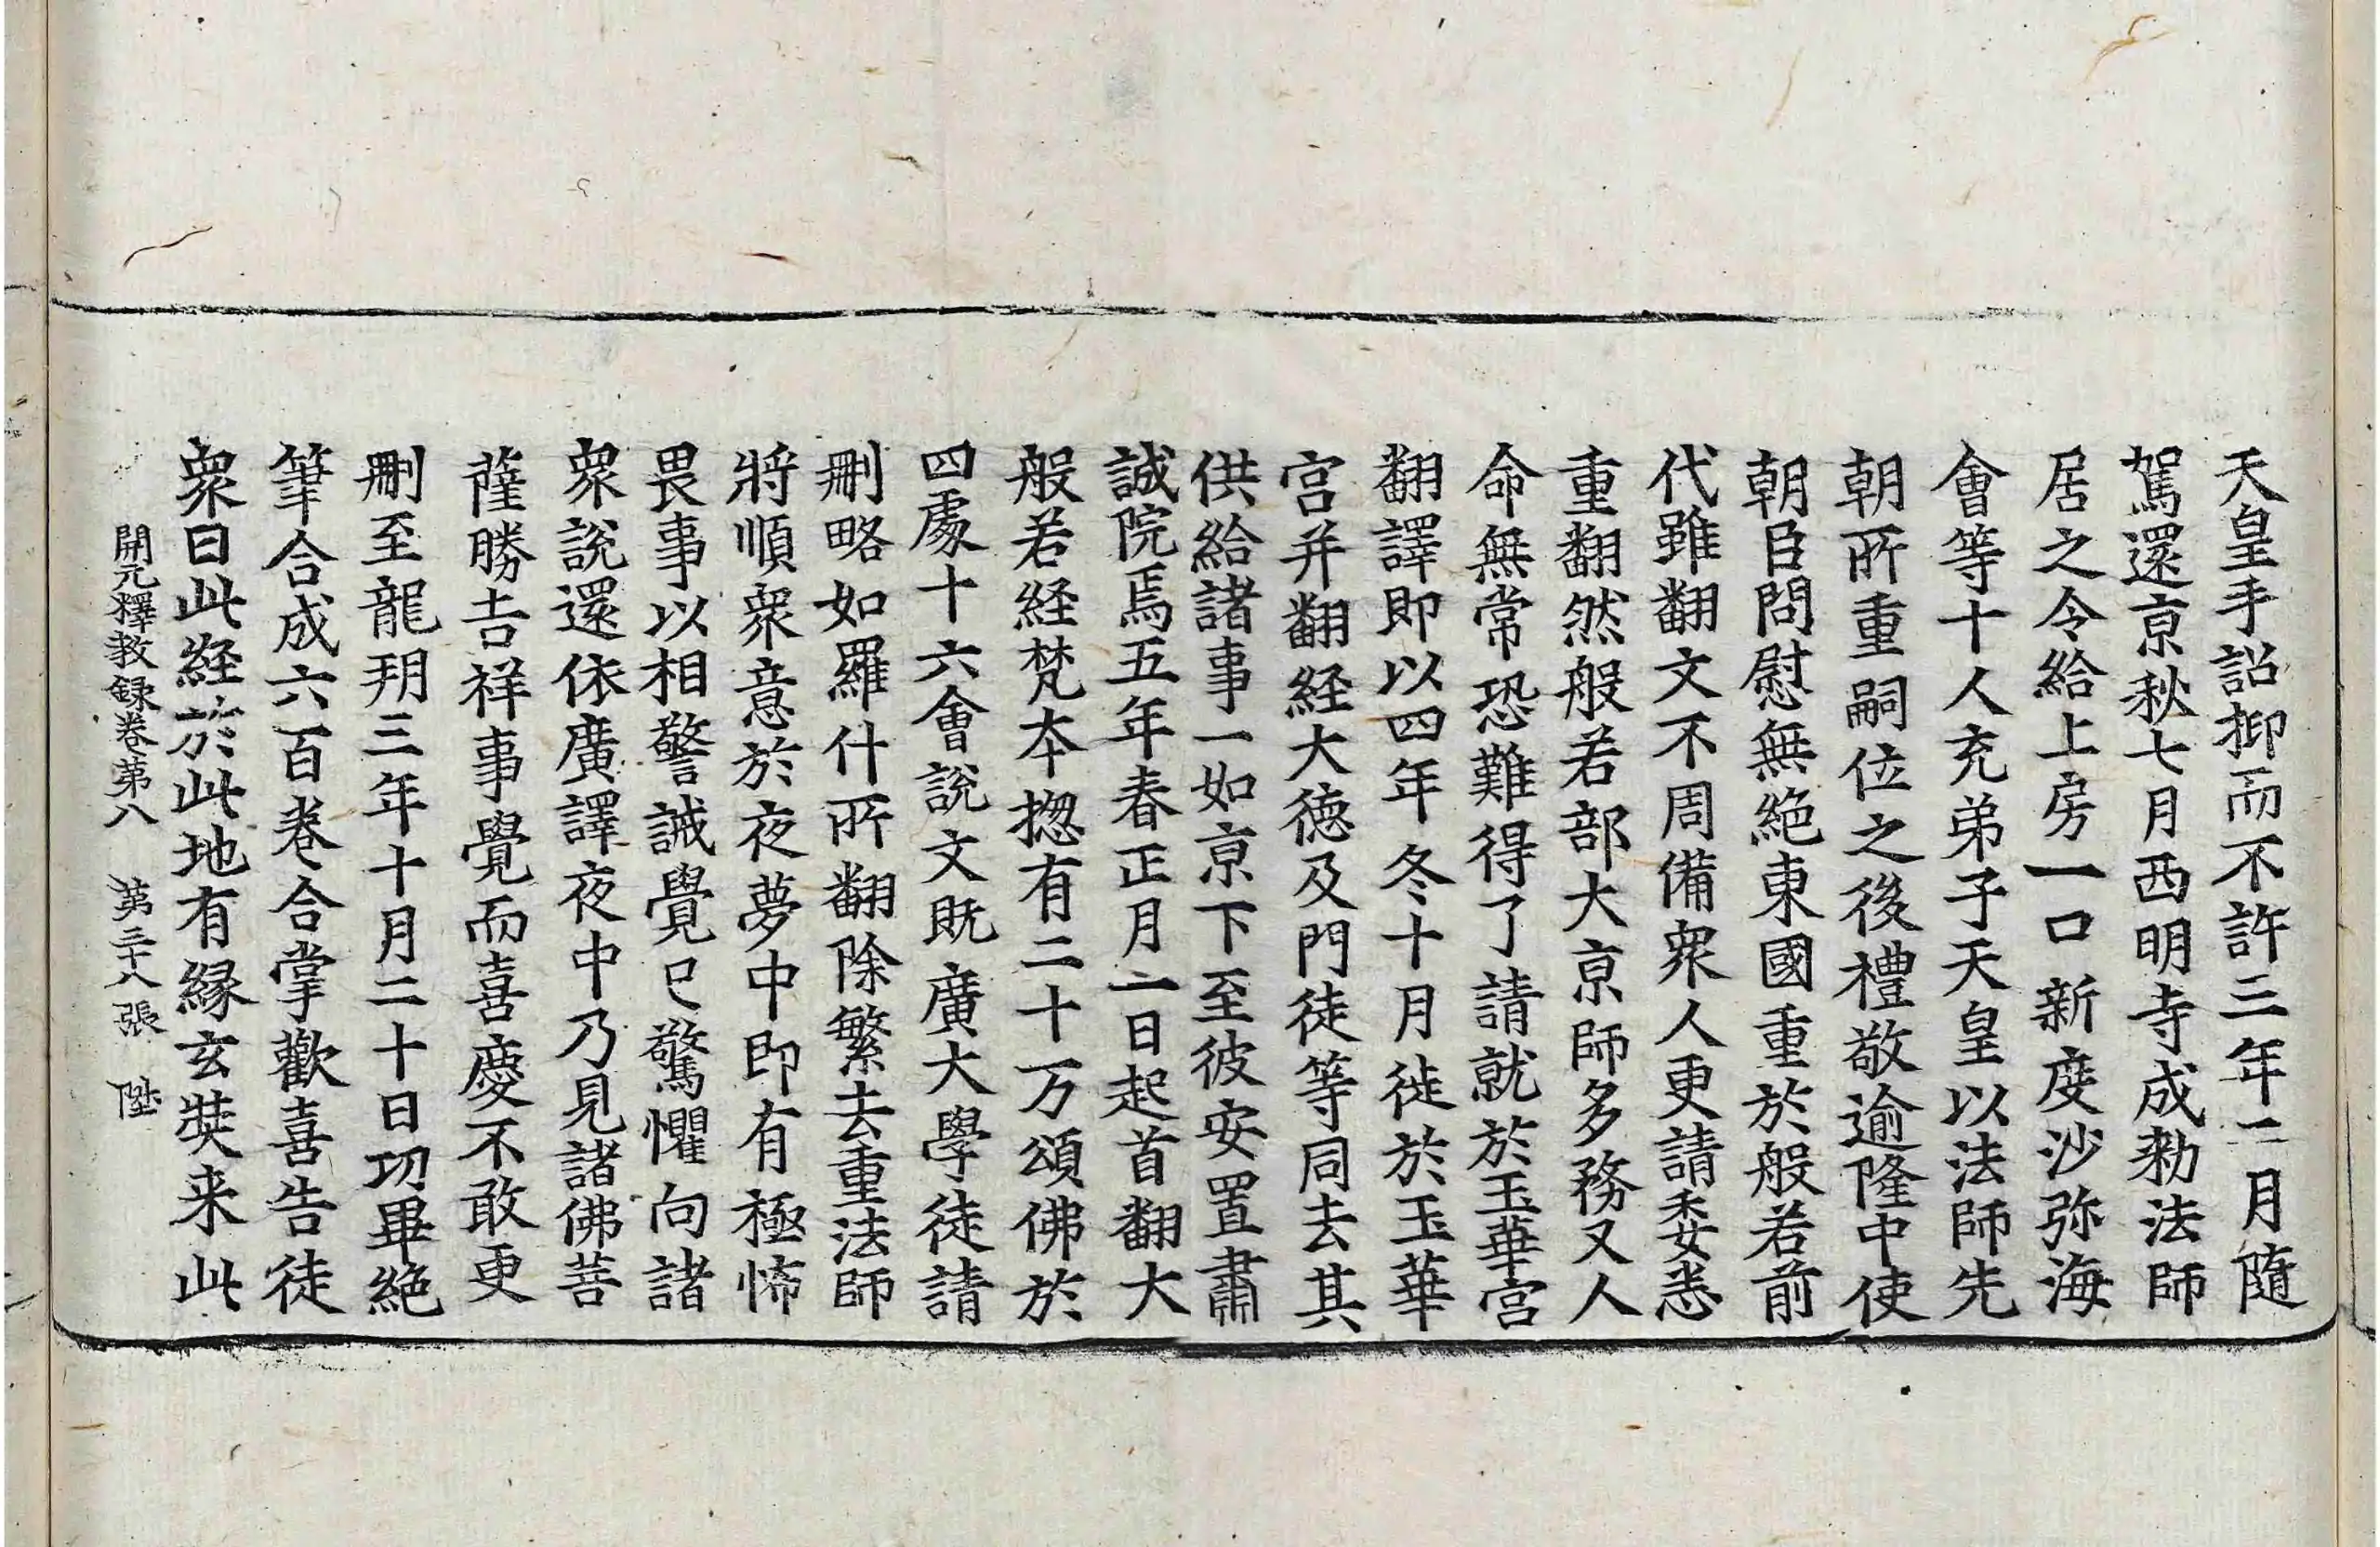 天皇手詔抑而不許三年二月隨
駕還京秋七月西明寺成勑法師
居之令給上房一口新度沙弥海
會等十人充弟子天皇以法師先
朝所重嗣位之後禮敬逾隆中使
朝臣問慰無絶東國重於般若前
代雖翻文不周備衆人更請委悉
重翻然般若部大京師多務又人
命無常恐難得了請就於玉華宫
翻譯即以四年冬十月徙於玉華
宫并翻経大德及門徒等同去其
供給諸事一如京下至彼安置肅
誠院焉五年春正月一日起首翻大
般若経梵夲揔有二十万頌佛於
四處十六會說文既廣大學徒請
刪略如羅什所翻除繁去重法師
將順衆意於夜夢中即有極怖
畏事以相警誡覺已驚懼向諸
衆說還依廣譯夜中乃見諸佛菩
薩勝吉祥事覺而喜慶不敢更
刪至龍朔三年十月二十日功畢絶
筆合成六百卷合掌歡喜告徒
衆曰此経於此地有縁玄奘来此
開元釋教録卷第八　第三十八張　陞